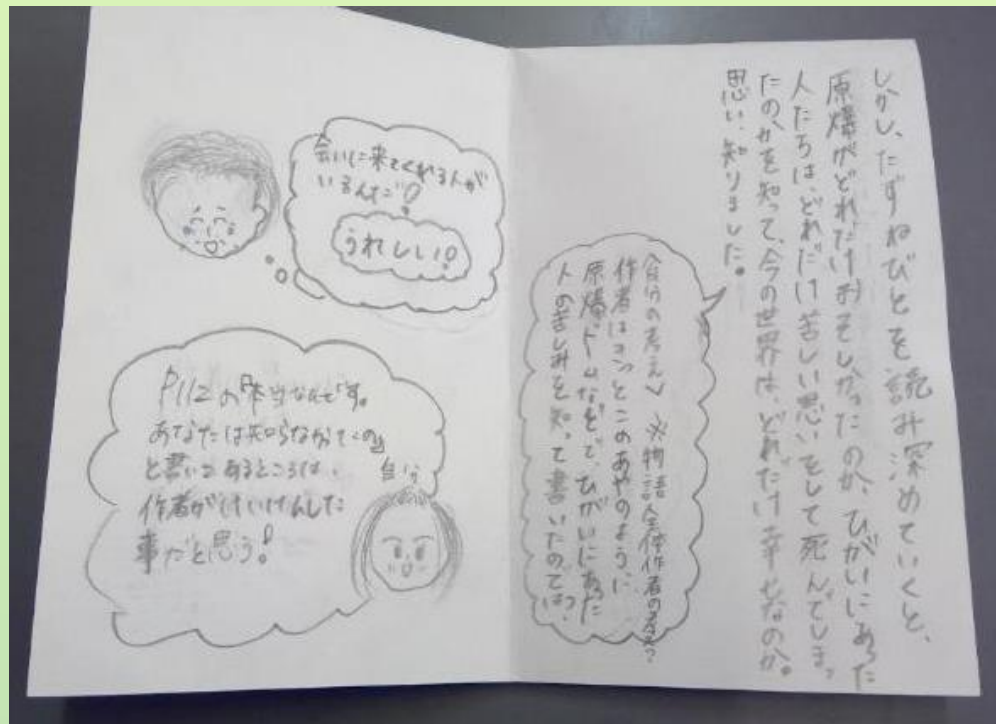 しかし、たずねびとを読み深めていくと、
原爆がどれだけおそしかったのか、ひがいにあった
人たちは、どれだけ苦しい思いをして死んでしまっ
たのかを知って、今の世界は、どれだけ幸せなのか。
思い、知りました。
自分の考え ※物語全体作者の考え?
作者はきっとこのあやのように
原爆ドームなどで、ひがいにあった
人の苦しみを知って書いたのでは?
会いに来てくれる人が
いるんだ!
うれしい!
P112の「本当なんです。
あなたは知らなかて」の
と書いてあるところは、
作者がけいけんした
事だと思う!
自分